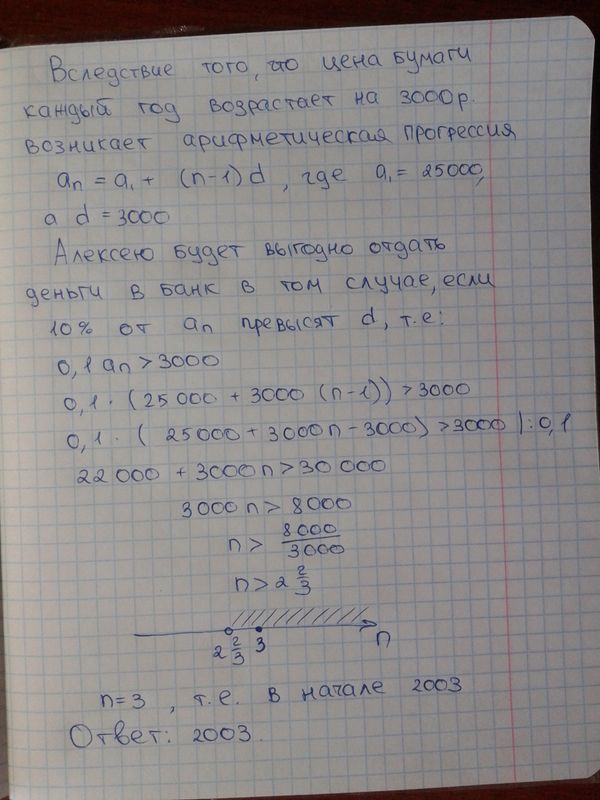 Вследствие того, что цена бумаги
каждый год возрастает на 3000р.
возникает арифметическая прогрессия
an = a1 + (n-1)d, где a1 = 25000,
а d = 3000
Алексею будет выгодно отдать
деньги в банк в том случае, если
10% от an превысят d, т.е:
0,1 an > 3000
0,1 · (25 000 + 3000 (n-1)) > 3000
0,1 · ( 25000 + 3000n - 3000) > 3000 | :0,1
22 000 + 3000n > 30 000
3000 n > 8000
n > 8000/3000
n > 2 2/3
2 2/3 3 n
n = 3 , т.е. в начале 2003
Ответ: 2003.